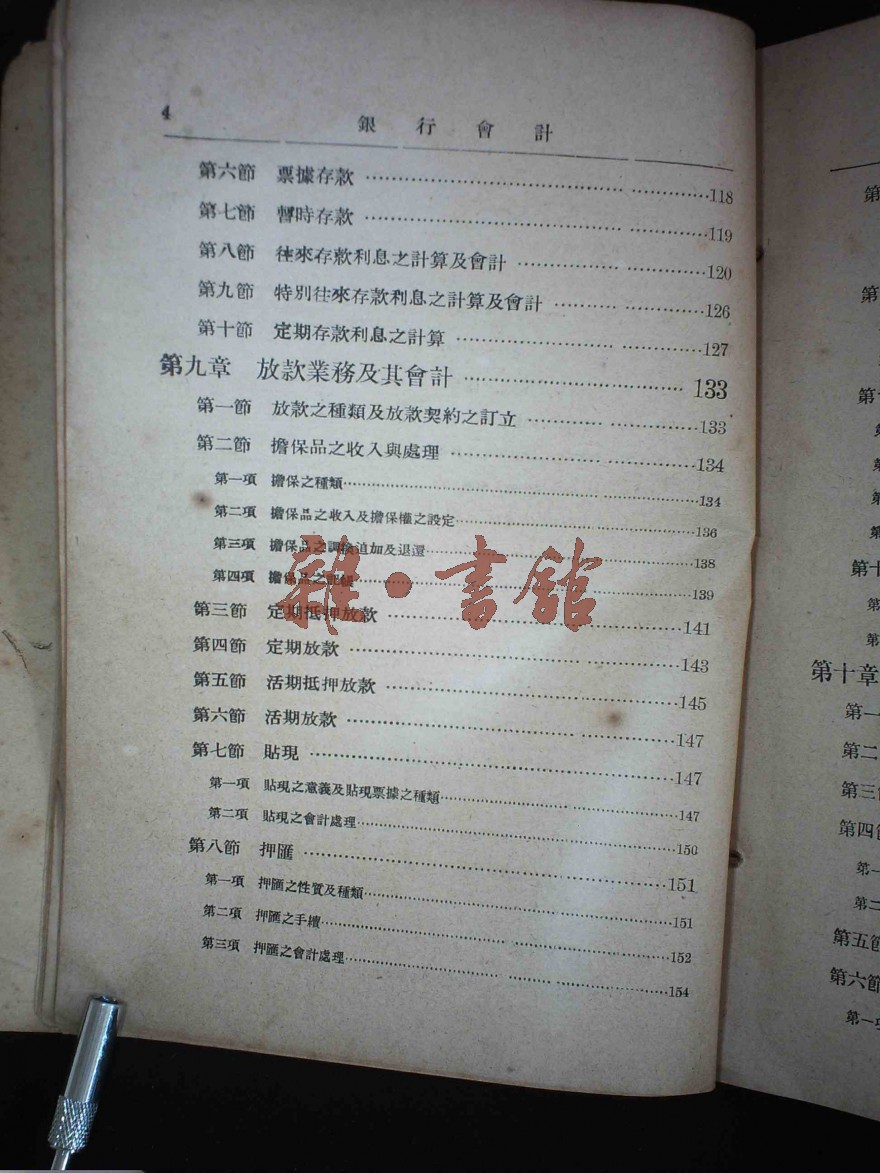 4
銀行會計
第六節 票據存款 118
第七節 暫時存款 119
第八節 往來存款利息之計算及會計 120
第九節 特別往來存款利息之計算及會計 126
第十節 定期存款利息之計算 127
第九章 放款業務及其會計 133
第一節 放款之種類及放款契約之訂立 133
第二節 擔保品之收入與處理 134
第一項 擔保之種類 134
第二項 擔保品之收入及擔保權之設定 136
第三項 擔保品之調換追加及退還 138
第四項 擔保品之記帳 139
第三節 定期抵押放款 141
第四節 定期放款 143
第五節 活期抵押放款 145
第六節 活期放款 147
第七節 貼現 147
第一項 貼現之意義及貼現票據之種類 147
第二項 貼現之會計處理 150
第八節 押匯 151
第一項 押匯之性質及種類 151
第二項 押匯之手續 152
第三項 押匯之會計處理 154
雜·書館
第
第
第十
第十
第十章
第一
第二
第三
第四節
第一
第二
第五節
第六節
第一項